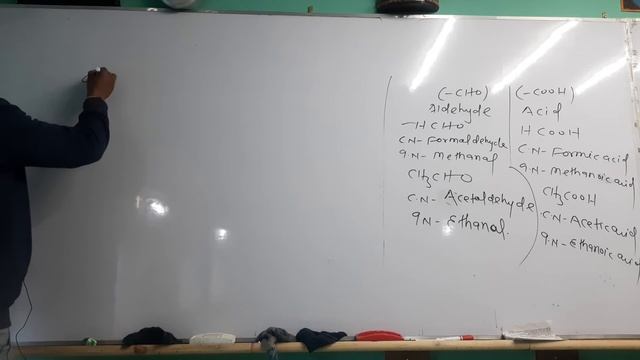 (-CHO)
Aldehyde
HCHO
C.N- Formaldehyde
IN- Methanal
CH3CHO
C.N- Acetaldehyde
IN- Ethanal.
(-COOH)
Acid
HCOOH
C.N- Formic acid
IN- Methanoic acid
CH3COOH
C.N- Acetic acid
IN- Ethanoic acid